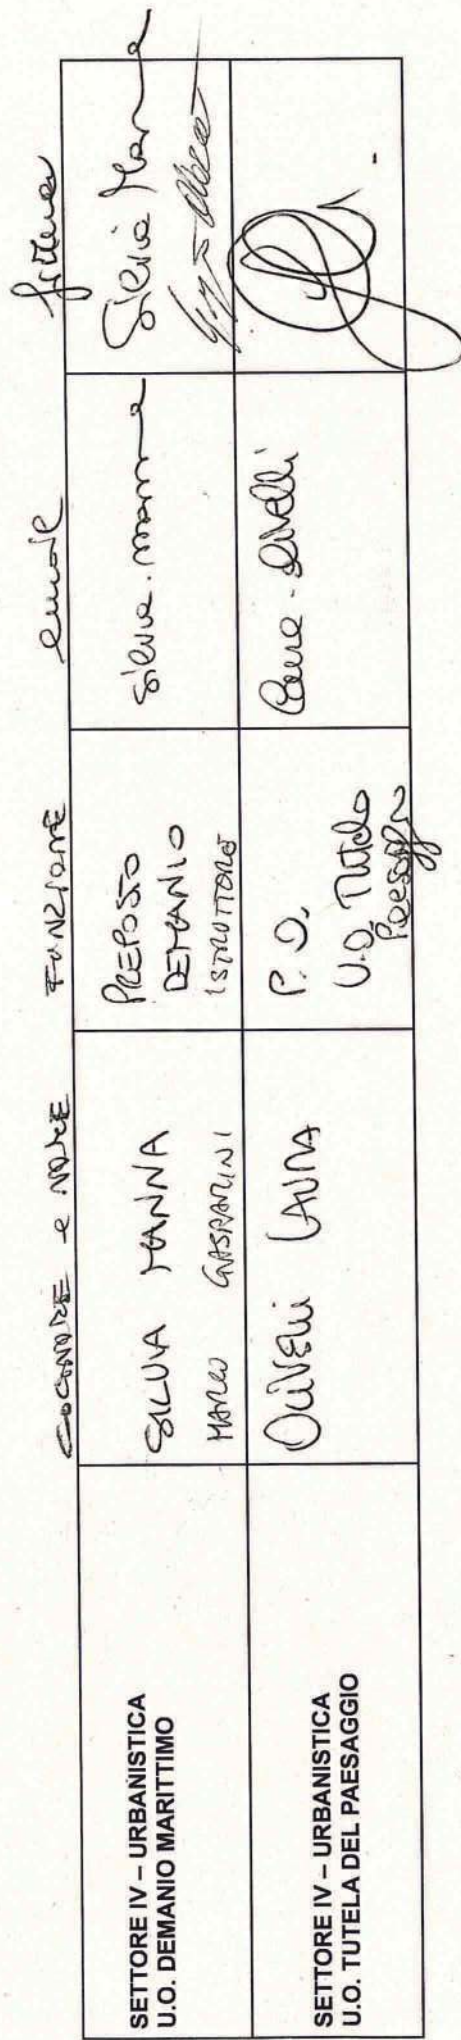 COGNOME e NOME FUNZIONE email firma
SETTORE IV – URBANISTICA
U.O. DEMANIO MARITTIMO
SILVIA MANNA
MARCO GASPARINI
PREPOSTO
DEMANIO
ISTRUTTORE
silvia.manna
Silvia Manna
SETTORE IV – URBANISTICA
U.O. TUTELA DEL PAESAGGIO
OLIVELLI LAURA
P.O.
U.O. Tutela
Paesaggio
laura.olivelli